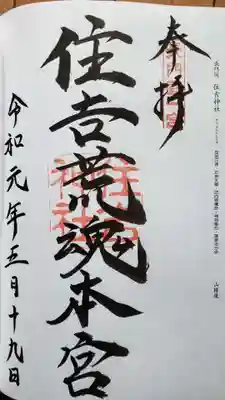 奉拝
住吉荒魂本宮
令和元年五月十九日
長門国 住吉神社
山陽道